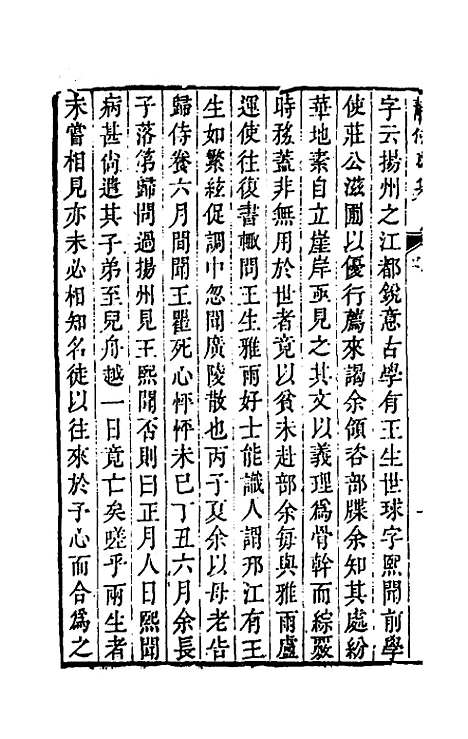 字云揚州之江都銳意古學有王生世球字熙聞前學
使莊公滋圃以優行薦來謁余頒咨部牒余知其處紛
華地素自立崖岸亟見之其文以義理爲骨幹而綜覈
時務蓋非無用於世者竟以貧未赴部余每與雅雨盧
運使往復書輙問王生雅雨好士能識人謂邗江有王
生如繁絃促調中忽聞廣陵散也丙子夏余以母老告
歸侍養六月間聞王瞿死心怦怦未已丁丑六月余長
子落第歸問過揚州見王熙聞否則曰正月人日熙聞
病甚尙遣其子弟至兒舟越一日竟亡矣嗟乎兩生者
未嘗相見亦未必相知名徒以往來於予心而合爲之